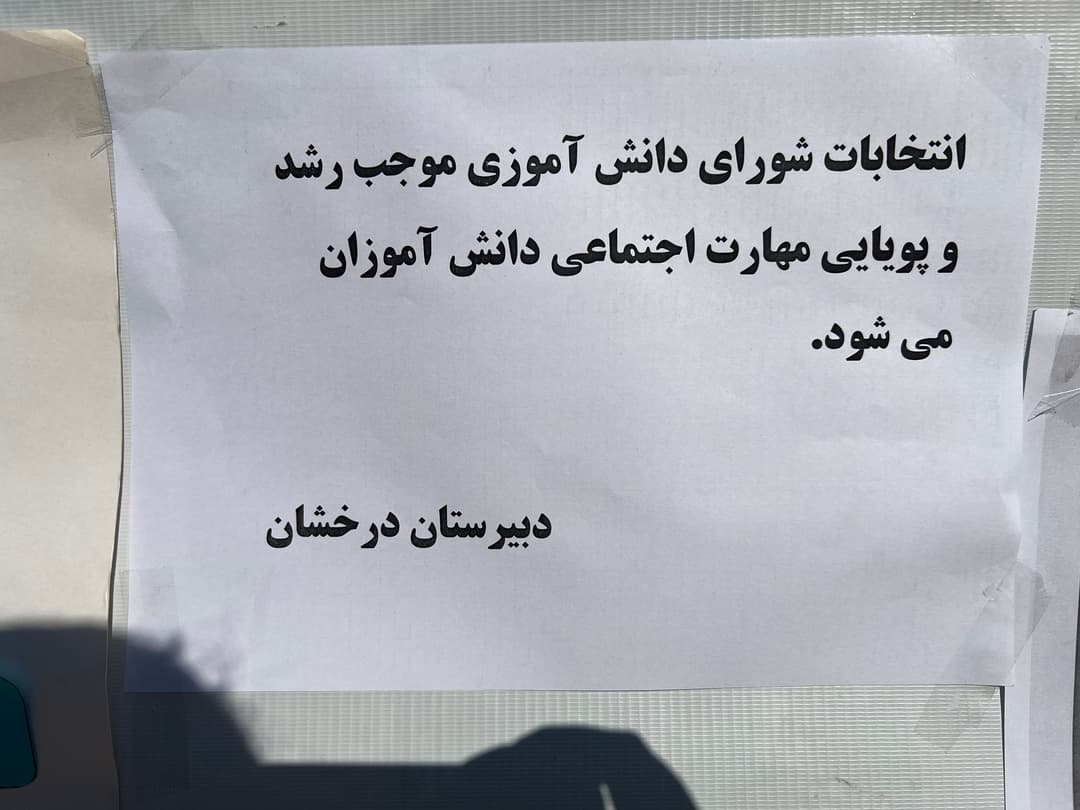 انتخابات شورای دانش آموزی موجب رشد
و پویایی مهارت اجتماعی دانش آموزان
می شود.
دبیرستان درخشان